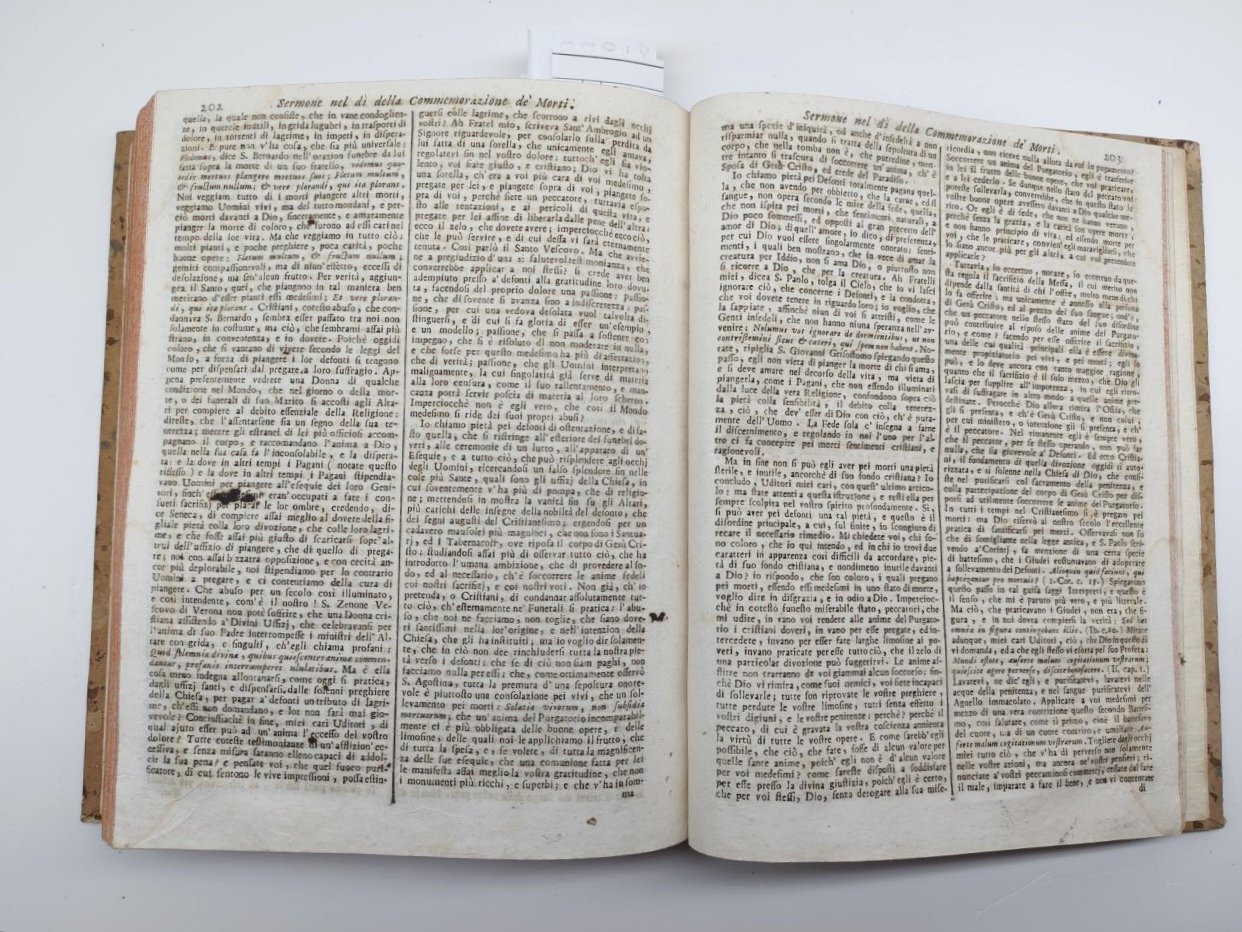 202 Sermone nel dì della Commemorazione de' Morti.
quella, la quale non consiste, che in vane condoglien-
ze, in querele inutili, in grida lugubri, in trasporti di
dolore, in torrenti di lagrime, in impeti, in dispera-
zioni. E pure non v'ha cosa, che sia più universale:
Videmus, dice S. Bernardo nell'orazion funebre da lui
fatta sopra la morte di un suo fratello, videmus quo-
tidie mortuos plangere mortuos suos; Fletum multum,
& fructum nullum; & vere plorandi, qui ita plorant.
Noi veggiam tutto dì i morti piangere altri morti,
veggiamo Uomini vivi, ma del tutto mondani, e per-
ciò morti davanti a Dio, sinceramente, e amaramente
pianger la morte di coloro, che furono ad essi cari nel
tempo della lor vita. Ma che veggiamo in tutto ciò?
molti pianti, e poche preghiere, poca carità, poche
buone opere: Fletum multum, & fructum nullum;
gemiti compassionevoli, ma di niun'effetto, eccessi di
desolazione, ma senz'alcun frutto. Per verità, aggiun-
ge il Santo, quei, che piangono in tal maniera ben
meritano d'esser pianti essi medesimi: Et vere ploran-
di, qui ita plorant. Cristiani, cotesto abuso, che con-
dannava S. Bernardo, sembra esser passato tra noi non
solamente in costume, ma ciò, che sembrami assai più
strano, in convenienza, e in dovere. Poichè oggidì
coloro, che si vantano di vivere secondo le leggi del
Mondo, a forza di piangere i lor defonti si tengono
come per dispensati dal pregare a loro suffragio. Ap-
pena presentemente vedrete una Donna di qualche
condizione nel Mondo, che nel giorno o della mor-
te, o dei funerali di suo Marito si accosti agli Alta-
ri per compiere al debito essenziale della Religione:
direste, che l'assentarsene sia un segno della sua te-
nerezza; mentre gli estranei di lei più officiosi accom-
pagnano il corpo, e raccomandano l'anima a Dio,
quella nella sua casa fa l'inconsolabile, e la dispera-
ta: e la dove in altri tempi i Pagani (notate questo
riflesso) e la dove in altri tempi i Pagani stipendia-
vano Uomini per piangere all'esequie dei loro Geni-
tori, finch' eran'occupati a fare i con-
sueti sacrifizj per placar le lor ombre, credendo, di-
ce Seneca, di compiere assai meglio al dovere della fi-
gliale pietà colla loro divozione, che colle loro lagri-
me, e che fosse assai più giusto di scaricarsi sopr'al-
trui dell'uffizio di piangere, che di quello di prega-
re; noi con assai bizzarra opposizione, e con cecità an-
cor più deplorabile, noi stipendiamo per lo contrario
Uomini a pregare, e ci contentiamo della cura di
piangere. Che abuso per un secolo così illuminato,
e così intendente, com'è il nostro! S. Zenone Ve-
scovo di Verona non potè soffrire, che una Donna cri-
stiana assistendo a' Divini Uffizj, che celebravansi per
l'anima di suo Padre interrompesse i ministri dell'Al-
tare con grida, e singulti, ch'egli chiama profani:
Quid solemnia divina, quibus quiescentes animæ commen-
dantur, profanis interrumperet ululatibus. Ma è ella
cosa meno indegna allontanarsi, come oggi si pratica,
dagli uffizj santi, e dispensarsi dalle solenni preghiere
della Chiesa, per pagar a' defonti un tributo di lagri-
me, ch'essi non domandano, e lor non sarà mai gio-
vevole? Conciossiachè in fine, miei cari Uditori, di
qual ajuto esser può ad un'anima l'eccesso del vostro
dolore? Tutte coteste testimonianze di un'afflizion'ec-
cessiva, e senza misura saranno elleno capaci di addol-
cir la sua pena? e pensate voi, che quel fuoco puri-
ficatore, di cui sentono le vive impressioni, possa estin-
guersi colle lagrime, che scorrono a rivi dagli occhi
vostri? Ah Fratel mio, scriveva Sant'Ambrogio ad un
Signore riguardevole, per consolarlo sulla perdita da
lui fatta di una sorella, che unicamente egli amava,
regolatevi sin nel vostro dolore: tuttoch'egli sia vio-
lento, voi siate giusto, e cristiano; Dio vi ha tolta
una sorella, ch'era a voi più cara di voi medesimo,
pregate per lei, e piangete sopra di voi, piangete so-
pra di voi, perchè siete un peccatore, tuttavia espo-
sto alle tentazioni, e ai pericoli di questa vita, e
pregate per lei affine di liberarla dalle pene dell'altra:
ecco il zelo, che dovete avere; imperciocchè ecco ciò,
che le può servire, e di cui dessa vi sarà eternamente
tenuta. Così parlò il Santo Vescovo. Ma che avvie-
ne a pregiudizio d'una sì salutevol testimonianza, che
converrebbe applicar a noi stessi? si crede aver ben
adempiuto presso a' defonti alla gratitudine loro dovu-
ta, facendosi del proprio dolore una passione: Passio-
ne, che di sovente si avanza sino a indiscretezza: pas-
sione, per cui una vedova desolata vuol talvolta di-
stinguersi, e di cui si fa gloria di esser un'esempio,
e un modello; passione, che si passa a sostener con
impegno, che si è risoluto di non moderare in nulla,
e che forse per questo medesimo ha più di affettazion,
che di verità; passione, che gli Uomini interpretano
malignamente, la cui singolarità già serve di materia
alla loro censura, come il suo rallentamento, e man-
canza potrà servir poscia di materia al loro scherno.
Imperciocchè non è egli vero, che così il Mondo
medesimo si ride dei suoi propri abusi?
Io chiamo pietà pei defonti di ostentazione, e di fa-
sto quella, che si ristringe all'esteriore dei funebri do-
veri, alle ceremonie di un lutto, all'apparato di un'
Esequie, e a tutto ciò, che può risplendere agli occhi
degli Uomini, ricercandosi un falso splendore sin nelle
cose più Sante, quali sono gli uffizj della Chiesa, in
cui soventemente v'ha più di pompa, che di religio-
ne; mettendosi in mostra la vanità sin su gli Altari,
più carichi delle insegne della nobiltà del defonto, che
dei segni augusti del Cristianesimo; ergendosi per un
cadavero mausolei più magnifici, che non sono i Santua-
rj, ed i Tabernacoli, ove riposa il corpo di Gesù Cri-
sto: studiandosi assai più di osservar tutto ciò, che ha
introdotto l'umana ambizione, che di provedere al so-
do, ed al necessario, ch'è soccorrere le anime fedeli
coi nostri sacrifizj, e coi nostri voti. Non già, ch'io
pretenda, o Cristiani, di condannar assolutamente tut-
to ciò, ch'esternamente ne' Funerali si pratica: l'abu-
so, che noi ne facciamo, non toglie, che siano dove-
ri santissimi nella lor'origine, e nell'intenzion della
Chiesa, che gli ha instituiti; ma io voglio dir solamen-
te, che in ciò non dee rinchiudersi tutta la nostra pie-
tà verso i defonti: che se di ciò non siam paghi, non
facciamo nulla per essi: che, come ottimamente osservò
S. Agostina, tutta la premura d'una sepoltura onore-
vole è piuttosto una consolazione pei vivi, che un sol-
levamento pei morti: Solatia vivorum, non subsidia
mortuorum; che un'anima del Purgatorio incomparabil-
mente ci è più obbligata delle buone opere, e delle
limosine, delle quali noi le applichiamo il frutto, che
di tutta la spesa, e, se volete, di tutta la magnificen-
za delle sue esequie, che una comunione fatta per lei
le manifesta assai meglio la vostra gratitudine, che non
i monumenti più ricchi, e superbi; e che v'ha in som-
ma
Sermone nel dì della Commemorazione de' Morti. 203
ma una spezie d'iniquità, od anche d'infedeltà a non
risparmiar nulla, quando si tratta della sepoltura di un
corpo, che nella tomba non è, che putredine, e men-
tre intanto si trascura di soccorrere un'anima, ch'è
Sposa di Gesù Cristo, ed erede del Paradiso.
Io chiamo pietà pei Defonti totalmente pagana quel-
la, che non avendo per obbietto, che la carne, ed il
sangue, non opera secondo le mire della fede, quella,
che non ispira pei morti, che sentimenti naturali, a
Dio poco sommessi, ed opposti al gran precetto dell'
amor di Dio; di quell'amore, io dico, di preferenza,
per cui Dio vuol essere singolarmente onorato: senti-
menti, i quali ben mostrano, che in vece di amar la
creatura per Iddio, non si ama Dio, o piuttosto non
si ricorre a Dio, che per la creatura. Ah Fratelli
miei, dicea S. Paolo, tolga il Cielo, che io vi lasci
ignorare ciò, che concerne i Defonti, e la condotta,
che voi dovete tenere in riguardo loro; io voglio, che
la sappiate, affinchè niun di voi si attristi, come le
Genti infedeli, che non hanno niuna speranza nell'av-
venire; Nolumus vos ignorare de dormientibus, ut non
contristemini sicut & cæteri, qui spem non habent. No-
rate, ripiglia S. Giovanni Grisostomo spiegando questo
passo, egli non vieta di pianger la morte di chi si ama,
e si deve amare nel decorso della vita, ma vieta di
piangerla, come i Pagani, che non essendo illuminati
dalla luce della vera Religione, confondono sopra ciò
la pietà colla sensibilità, il debito colla tenerez-
za, ciò, che dev'esser di Dio con ciò, ch'è pura-
mente dell'Uomo. La Fede sola c'insegna a farne
il discernimento, e regolando in noi l'uno per l'al-
tro ci fa concepire pei morti sentimenti cristiani, e
ragionevoli.
Ma in fine non si può egli aver pei morti una pietà
sterile, e inutile, ancorchè di suo fondo cristiana? Io
concludo, Uditori miei cari, con quest'ultimo artico-
lo: ma state attenti a questa istruzione, e resti ella per
sempre scolpita nel vostro spirito profondamente. Sì,
si può aver pei defonti una tal pietà, e questo è il
disordine principale, a cui, sul finire, io scongiuro di
recare il necessario rimedio. Mi chiedete voi, chi so-
no coloro, che io qui intendo, ed in chi io trovi due
caratteri in apparenza così difficili da accordare, pie-
tà di suo fondo cristiana, e nondimeno inutile davanti
a Dio? io rispondo, che son coloro, i quali pregano
pei morti, essendo essi medesimi in uno stato di morte,
voglio dire in disgrazia, e in odio a Dio. Impercioc-
chè in cotesto funesto miserabile stato, peccatori, che
mi udite, in vano voi rendete alle anime del Purgato-
rio i cristiani doveri, in vano per esse pregate, ed in-
tercedete, invano per esse fate larghe limosine ai po-
veri, invano praticate per esse tutto ciò, che il zelo di
una particolar divozione può suggerirvi. Le anime af-
flitte non trarranno da voi giammai alcun soccorso; fin-
chè Dio vi rimira, come suoi nemici, voi siete incapaci
di sollevarle; tutte son riprovate le vostre preghiere,
tutte perdute le vostre limosine, tutti senza effetto i
vostri digiuni, e le vostre penitenze: perchè? perchè il
peccato, di cui è gravata la vostra coscienza annienta
la virtù di tutte le vostre opere. E come sarebb'egli
possibile, che ciò, che fate, fosse di alcun valore per
quelle sante anime, poich'egli non è d'alcun valore
per voi medesimi? come sareste disposti a soddisfare
per esse presso la divina giustizia, poich'egli è certo,
che per voi stessi, Dio, senza derogare alla sua mise-
ricordia, non riceve nulla allora da voi in pagamento?
Soccorrere un'anima del Purgatorio, egli è trasferire
in lei il frutto delle buone opere, che voi praticate,
e a lei cederlo. Se dunque nello stato del peccato voi
poteste sollevarla, converrebbe, che in questo stato le
vostre buone opere avessero davanti a Dio qualche me-
rito. Or egli è di fede, che non ne hanno veruno;
perchè senza la grazia, e la carità son opere morte,
e non hanno principio di vita: ed essendo morte per
voi, che le praticate, convien'egli maravigliarsi, che
lo siano ancor più per gli altri, a cui voi pretendete
applicarle?
Tuttavia, io eccettuo, notate, io eccettuo da que-
sta regola il sacrifizio della Messa, il cui merito non
dipende dalla santità di chi l'offre, molto meno di chi
lo fa offerire; ma unicamente è annesso alla persona
di Gesù Cristo, ed al prezzo del suo sangue; ond'è,
che un peccatore nello stesso stato del suo disordine
può contribuire al riposo delle anime del Purgato-
rio, e come? facendo per esse offerire il sacrifizio,
una delle cui qualità principali ella è essere divina-
mente propiziatorio pei vivi, e pei morti; egli lo
può, e lo deve ancora con tanto maggior ragione,
quanto che il sacrifizio è il solo mezzo, che Dio gli
lascia per supplire all'impotenza, in cui egli ritro-
vasi di suffragare in altro modo a quelle anime pre-
destinate. Perciocchè Dio allora rimira l'Ostia, che
gli si presenta, e ch'è Gesù Cristo, e non colui,
per cui ministro, o intenzione gli si presenta, e ch'
è il peccatore. Nel rimanente egli è sempre vero,
che il peccator, per se stesso operando non può far
nulla, che sia giovevole a' Defonti. Ed ecco Cristia-
ni, il fondamento di quella divozion oggidì sì auto-
rizzata, e sì solenne nella Chiesa di Dio, che consi-
ste nel purificarsi col sacramento della penitenza, e
colla partecipazione del corpo di Gesù Cristo per dis-
porsi ad utilmente soccorrere le anime del Purgatorio.
In tutti i tempi nel Cristianesimo si è pregato pei
morti: ma Dio riserbò al nostro secolo l'eccellente
pratica di santificarsi pei morti. Osservavasi non so
che di somigliante nella legge antica, e S. Paolo scri-
vendo a' Corintj, fa menzione di una certa specie
di battesimo, che i Giudei costumavano di adoperare
a sollevamento dei Defonti. Alioquin quid facient, qui
baptizantur pro mortuis? (1. Cor. c. 15.) Spiegarono
questo passo in tal guisa saggi Interpreti, e questo è
il senso, che mi è paruto più vero, e più litterale.
Ma ciò, che praticavano i Giudei, non era, che fi-
gura, e in noi dovea compiersi la verità: Sed hæc
omnia in figura contingebant illis. (Ib. c. 10.) Mirate
adunque, miei cari Uditori, ciò, che Dio in questo dì
vi domanda, ed a che dessi egli vi esorta pel suo Profeta:
Mundi estote, auferte malum cogitationum vestrarum;
quiescite agere perverse, discite benefacere. (Is. cap. 1.)
Lavatevi, ne dic'egli, e purificatevi, lavatevi nelle
acque della penitenza, e nel sangue purificatevi dell'
Agnello immacolato. Applicate a voi medesimi per
mezzo di una vera contrizione questo secondo Battesi-
mo, così salutare, come il primo, cioè il battesimo
del cuore, ma di un cuore contrito, e umiliato. Au-
ferte malum cogitationum vestrarum. Togliete dagli occhi
miei tutto ciò, che v'ha di perverso non solamente
nelle vostre azioni, ma ancora ne' vostri pensieri; ri-
nunciate a' vostri peccaminosi commercj, cessate dal fare
il male, imparate a fare il bene, e non vi contentate
di